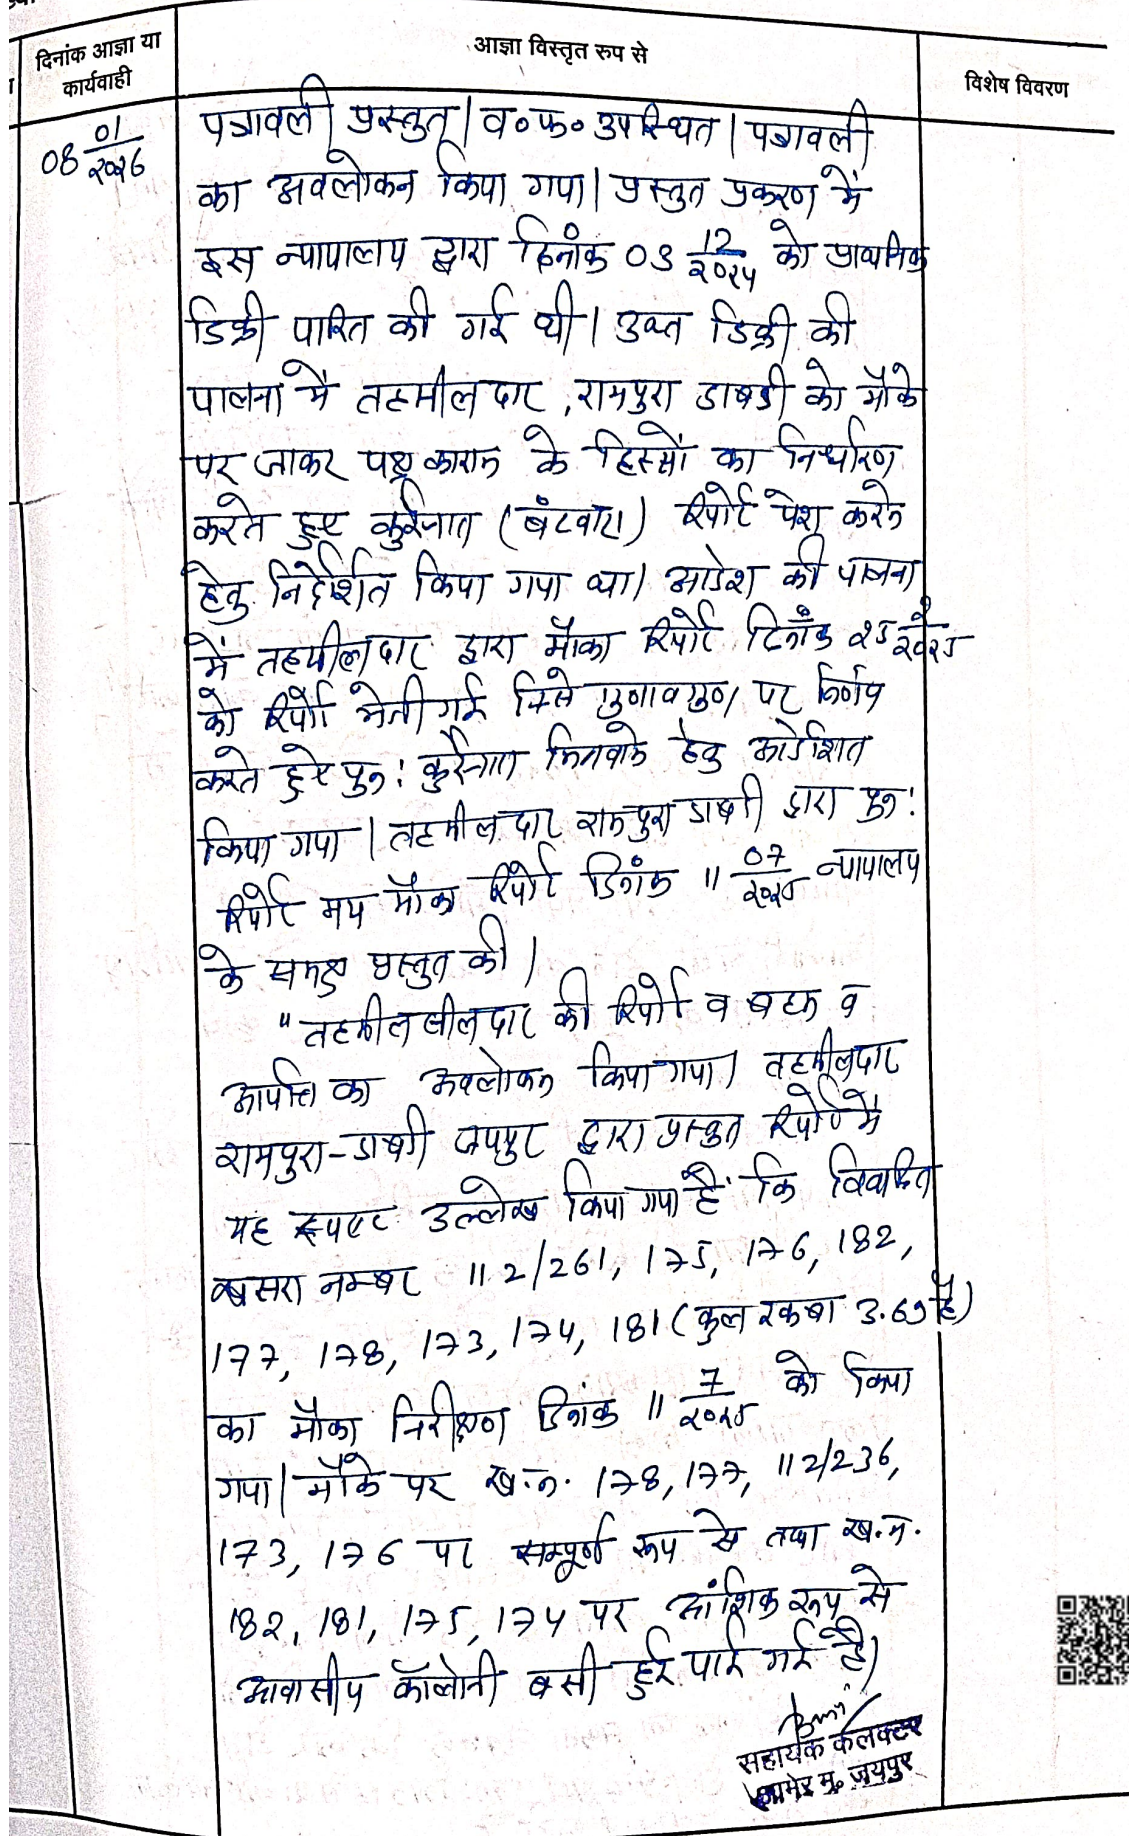 दिनांक आज्ञा या
कार्यवाही
आज्ञा विस्तृत रुप से
विशेष विवरण
08 01/2026
पत्रावली प्रस्तुत। व०फ० उपस्थित। पत्रावली
का अवलोकन किया गया। प्रस्तुत प्रकरण में
इस न्यायालय द्वारा दिनांक 03 12/2024 को प्राथमिक
डिक्री पारित की गई थी। उक्त डिक्री की
पालना में तहसीलदार, रामपुरा डाबडी को मौके
पर जाकर पक्षकारान के हिस्सों का निर्धारण
करते हुए कुर्रेजात (बंटवारा) रिपोर्ट पेश करने
हेतु निर्देशित किया गया था। आदेश की पालना
में तहसीलदार द्वारा मौका रिपोर्ट दिनांक
को रिपोर्ट भेजी गई जिसे गुणावगुण पर निर्णय
करते हुये पुन: कुर्रेजात भिजवाने हेतु आदेशित
किया गया। तहसीलदार रामपुरा डाबडी द्वारा पुन:
रिपोर्ट मय मौका रिपोर्ट दिनांक 11 07/2025 न्यायालय
के समक्ष प्रस्तुत की।
"तहसीलसीलदार की रिपोर्ट व बहस व
आपत्ति का अवलोकन किया गया। तहसीलदार
रामपुरा-डाबडी जयपुर द्वारा प्रस्तुत रिपोर्ट में
यह स्पष्ट उल्लेख किया गया है कि विवादित
खसरा नम्बर 112/261, 175, 176, 182,
177, 178, 173, 174, 181 (कुल रकबा 3.69 है)
का मौका निरीक्षण दिनांक 11 7/2025 को किया
गया। मौके पर ख.न. 178, 177, 112/236,
173, 176 पर सम्पूर्ण रूप से तथा ख.न.
182, 181, 175, 174 पर आंशिक रूप से
आवासीय कॉलोनी बसी हुई पाई गई है।
सहायक कलक्टर
आमेर मु. जयपुर